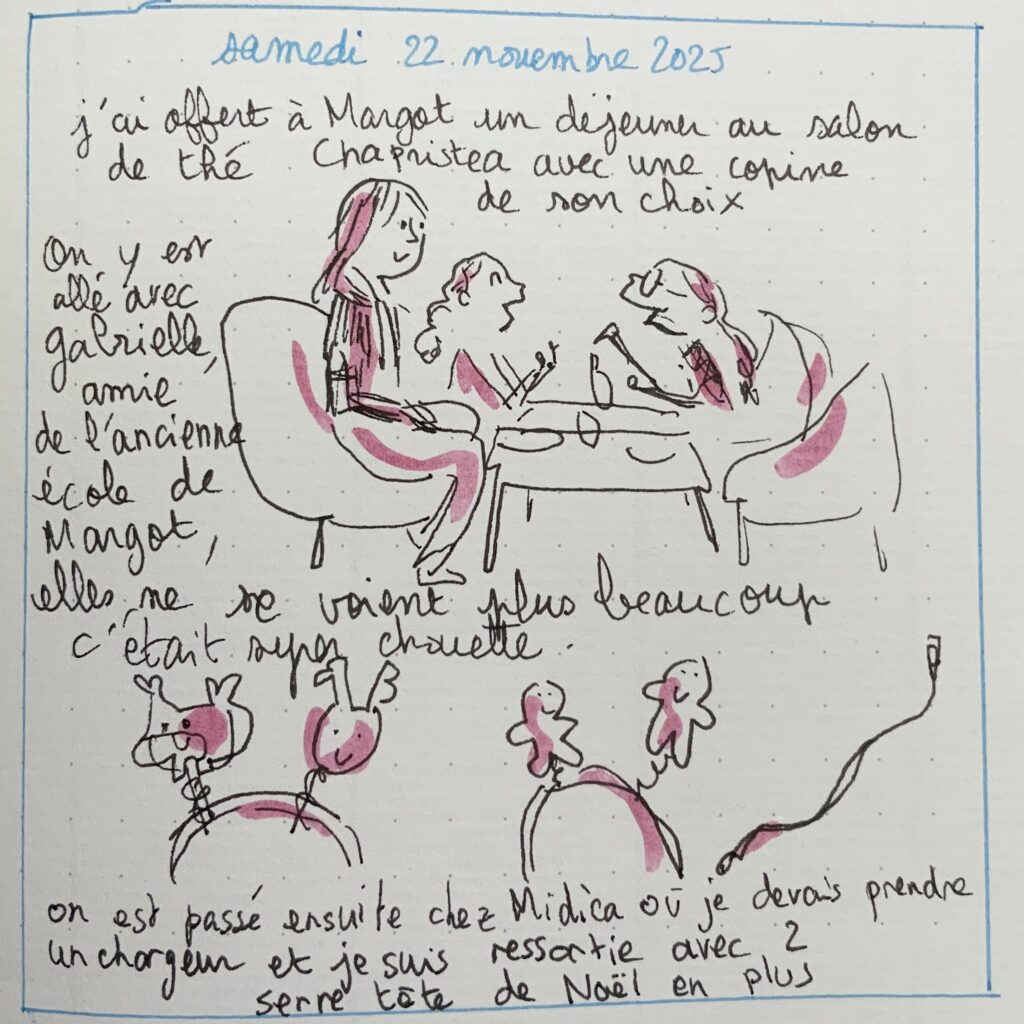 samedi 22 novembre 2025
j'ai offert à Margot un déjeuner au salon
de thé Chapristea avec une copine
de son choix
On y est
allé avec
gabrielle,
amie
de l'ancienne
école de
Margot,
elles ne se voient plus beaucoup
c'était super chouette.
on est passé ensuite chez Midica où je devais prendre
un chargeur et je suis ressortie avec 2
serre tête de Noël en plus